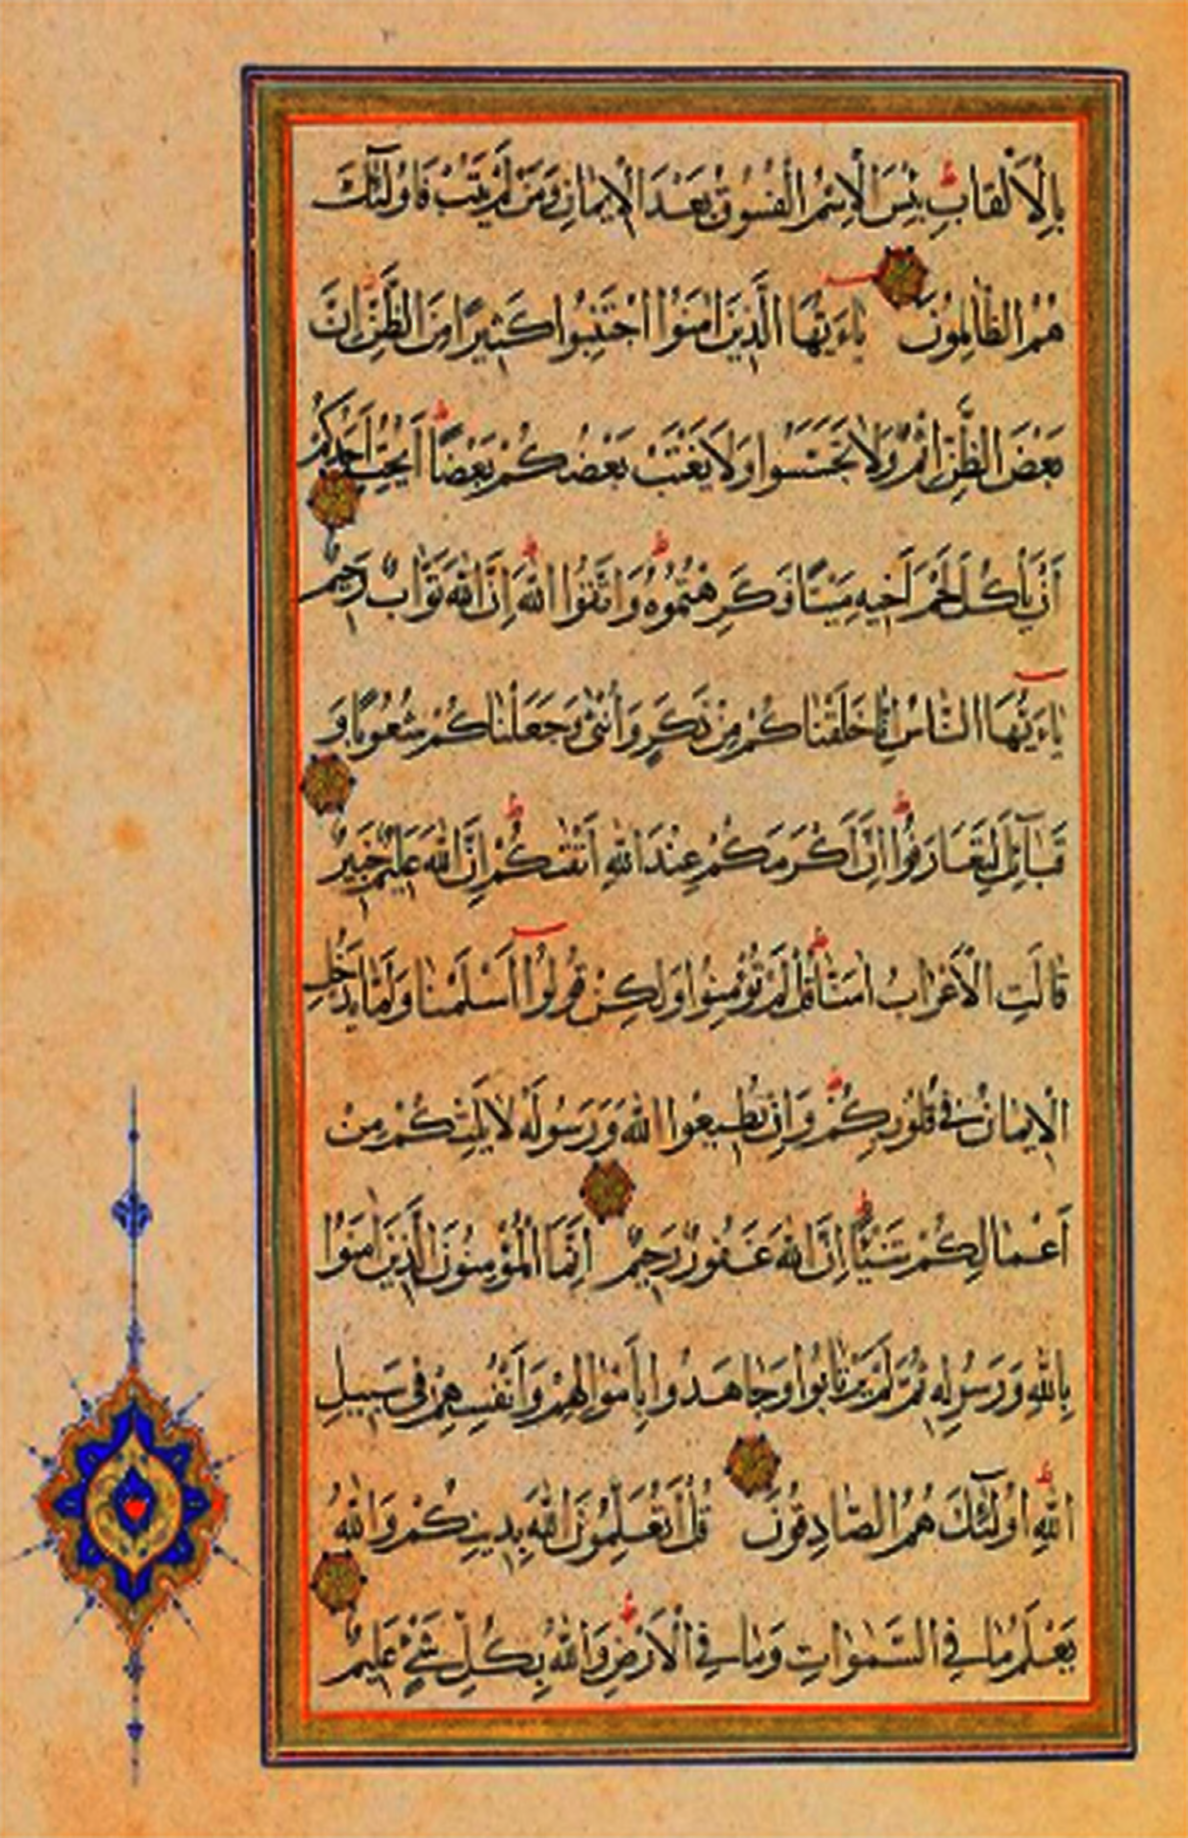 بِالْاَلْقابِ بِئْسَ الْاِسْمُ الْفُسُوقُ بَعْدَ الْاِيمانِ وَمَنْ لَمْ يَتُبْ فَاُولٰٓئِكَ
هُمُ الظّالِمُونَ يٰاءَيُّهَا الَّذينَ اٰمَنُوا اجْتَنِبُوا كَثيرًا مِنَ الظَّنِّ اِنَّ
بَعْضَ الظَّنِّ اِثْمٌ وَلا تَجَسَّسُوا وَلا يَغْتَبْ بَعْضُكُمْ بَعْضًا اَيُحِبُّ اَحَدُكُمْ
اَنْ يَأْكُلَ لَحْمَ اَخيهِ مَيْتًا فَكَرِهْتُمُوهُ وَاتَّقُوا اللّٰهَ اِنَّ اللّٰهَ تَوّابٌ رَحيمٌ
يٰاءَيُّهَا النّاسُ اِنّا خَلَقْناكُمْ مِنْ ذَكَرٍ وَاُنْثٰى وَجَعَلْناكُمْ شُعُوبًا وَ
قَبآئِلَ لِتَعارَفُوا اِنَّ اَكْرَمَكُمْ عِنْدَ اللّٰهِ اَتْقٰىكُمْ اِنَّ اللّٰهَ عَليمٌ خَبيرٌ
قالَتِ الْاَعْرابُ اٰمَنّا قُلْ لَمْ تُؤْمِنُوا وَلٰكِنْ قُولُوا اَسْلَمْنا وَلَمّا يَدْخُلِ
الْاِيمانُ في قُلُوبِكُمْ وَاِنْ تُطيعُوا اللّٰهَ وَرَسُولَهُ لا يَلِتْكُمْ مِنْ
اَعْمالِكُمْ شَيْئًا اِنَّ اللّٰهَ غَفُورٌ رَحيمٌ اِنَّمَا الْمُؤْمِنُونَ الَّذينَ اٰمَنُوا
بِاللّٰهِ وَرَسُولِهِ ثُمَّ لَمْ يَرْتابُوا وَجاهَدُوا بِاَمْوالِهِمْ وَاَنْفُسِهِمْ في سَبيلِ
اللّٰهِ اُولٰٓئِكَ هُمُ الصّادِقُونَ قُلْ اَتُعَلِّمُونَ اللّٰهَ بِدينِكُمْ وَاللّٰهُ
يَعْلَمُ ما فِي السَّمٰواتِ وَما فِي الْاَرْضِ وَاللّٰهُ بِكُلِّ شَيْءٍ عَليمٌ